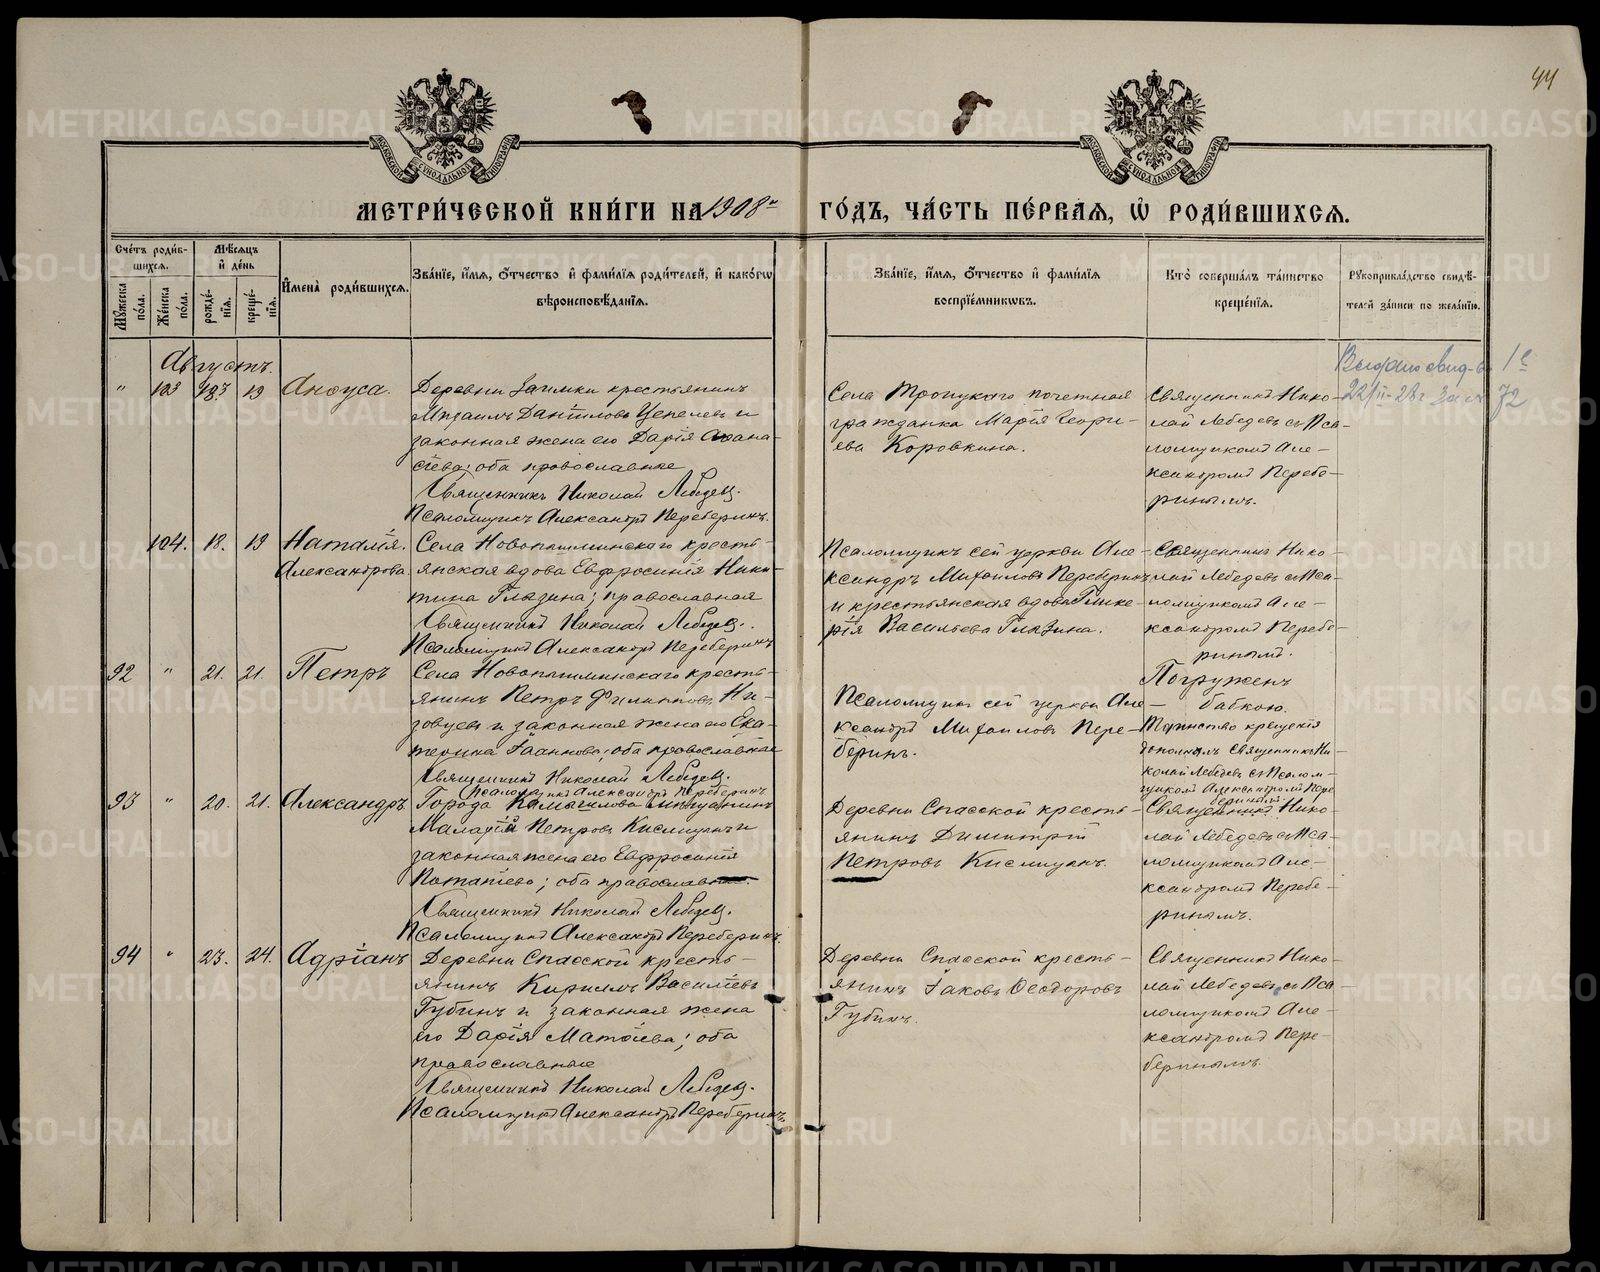 44
МОСКОВСКОЙ СѴНОДАЛЬНОЙ ТИПОГРАФІИ
МОСКОВСКОЙ СѴНОДАЛЬНОЙ ТИПОГРАФІИ
МЕТРИ́ЧЕСКОЙ КНИ́ГИ НА 1908й ГО́ДЪ, ЧА́СТЬ ПЕ́РВАѦ, Ѡ РОДИ́ВШИХСѦ.
Сче́тъ роди́вшихсѧ.
Мꙋ́жеска по́ла.
Же́нска по́ла.
Мѣ́сѧцъ и́ де́нь
рожде́нїѧ.
креще́нїѧ.
И҆мена̀ роди́вшихсѧ.
Зва́нїе, и҆́мѧ, ѻ҆́тчество и҆ фами́лїѧ роди́телей, и҆ како́гѡ
вѣроисповѣ́данїѧ.
Зва́нїе, и҆́мѧ, ѻ҆́тчество и҆ фами́лїѧ
воспрїе́мникѡвъ.
Кто̀ соверша́лъ та́инство
креще́нїѧ.
Рꙋкоприкла́дство свидѣ́-
телей за́писи по жела́нїю.
Августъ.
" 103 18. 19 Анѳуса.
Деревни Заимки крестьянинъ
Михаилъ Даніиловъ Цепелевъ и
законная жена его Дарія Аѳана-
сіева; оба православные
Священникъ Николай Лебедевъ.
Псаломщикъ Александръ Переберинъ.
Села Троицкаго почетная
гражданка Марія Георгі-
ева Коровкина.
Священникъ Нико-
лай Лебедевъ съ Пса-
ломщикомъ Але-
ксандромъ Перебе-
ринымъ.
Выдано свид-во
22/II-28г за № 72
104. 18. 19 Наталія.
Александрова
Села Новопышминскаго кресть-
янская вдова Евфросинія Ники-
тина Глызина; православная
Священникъ Николай Лебедевъ.
Псаломщикъ Александръ Переберинъ
Псаломщикъ сей церкви Але-
ксандръ Михаиловъ Переберинъ
и крестьянская вдова Глике-
рія Васильева Глызина.
Священникъ Нико-
лай Лебедевъ съ Пса-
ломщикомъ Але-
ксандромъ Перебе-
ринымъ.
92 " 21. 21. Петръ
Села Новопышминскаго кресть-
янинъ Петръ Филипповъ Ни-
зовцевъ и законная жена его Ека-
терина Іоаннова; оба православные
Священникъ Николай Лебедевъ.
Псаломщикъ Александръ Переберинъ
Псаломщикъ сей церкви Але-
ксандръ Михаиловъ Пере-
беринъ.
Погруженъ
бабкою.
Таинство крещенія
дополнялъ Священникъ Ни-
колай Лебедевъ съ Псалом-
щикомъ Александромъ Пере-
беринымъ.
93 " 20. 21. Александръ
Города Камышлова мѣщанинъ
Малафій Петровъ Кислицинъ и
законная жена его Евфросинія
Потапіева; оба православные.
Священникъ Николай Лебедевъ.
Псаломщикъ Александръ Переберинъ.
Деревни Спасской кресть-
янинъ Димитрій
Петровъ Кислицинъ.
Священникъ Нико-
лай Лебедевъ съ Пса-
ломщикомъ Але-
ксандромъ Перебе-
ринымъ.
94 " 23. 24. Адріанъ
Деревни Спасской кресть-
янинъ Кириллъ Василіевъ
Губинъ и законная жена
его Дарія Матѳіева; оба
православные
Священникъ Николай Лебедевъ.
Псаломщикъ Александръ Переберинъ
Деревни Спасской кресть-
янинъ Іаковъ Ѳеодоровъ
Губинъ.
Священникъ Нико-
лай Лебедевъ съ Пса-
ломщикомъ Але-
ксандромъ Пере-
беринымъ.
METRIKI.GASO-URAL.RU